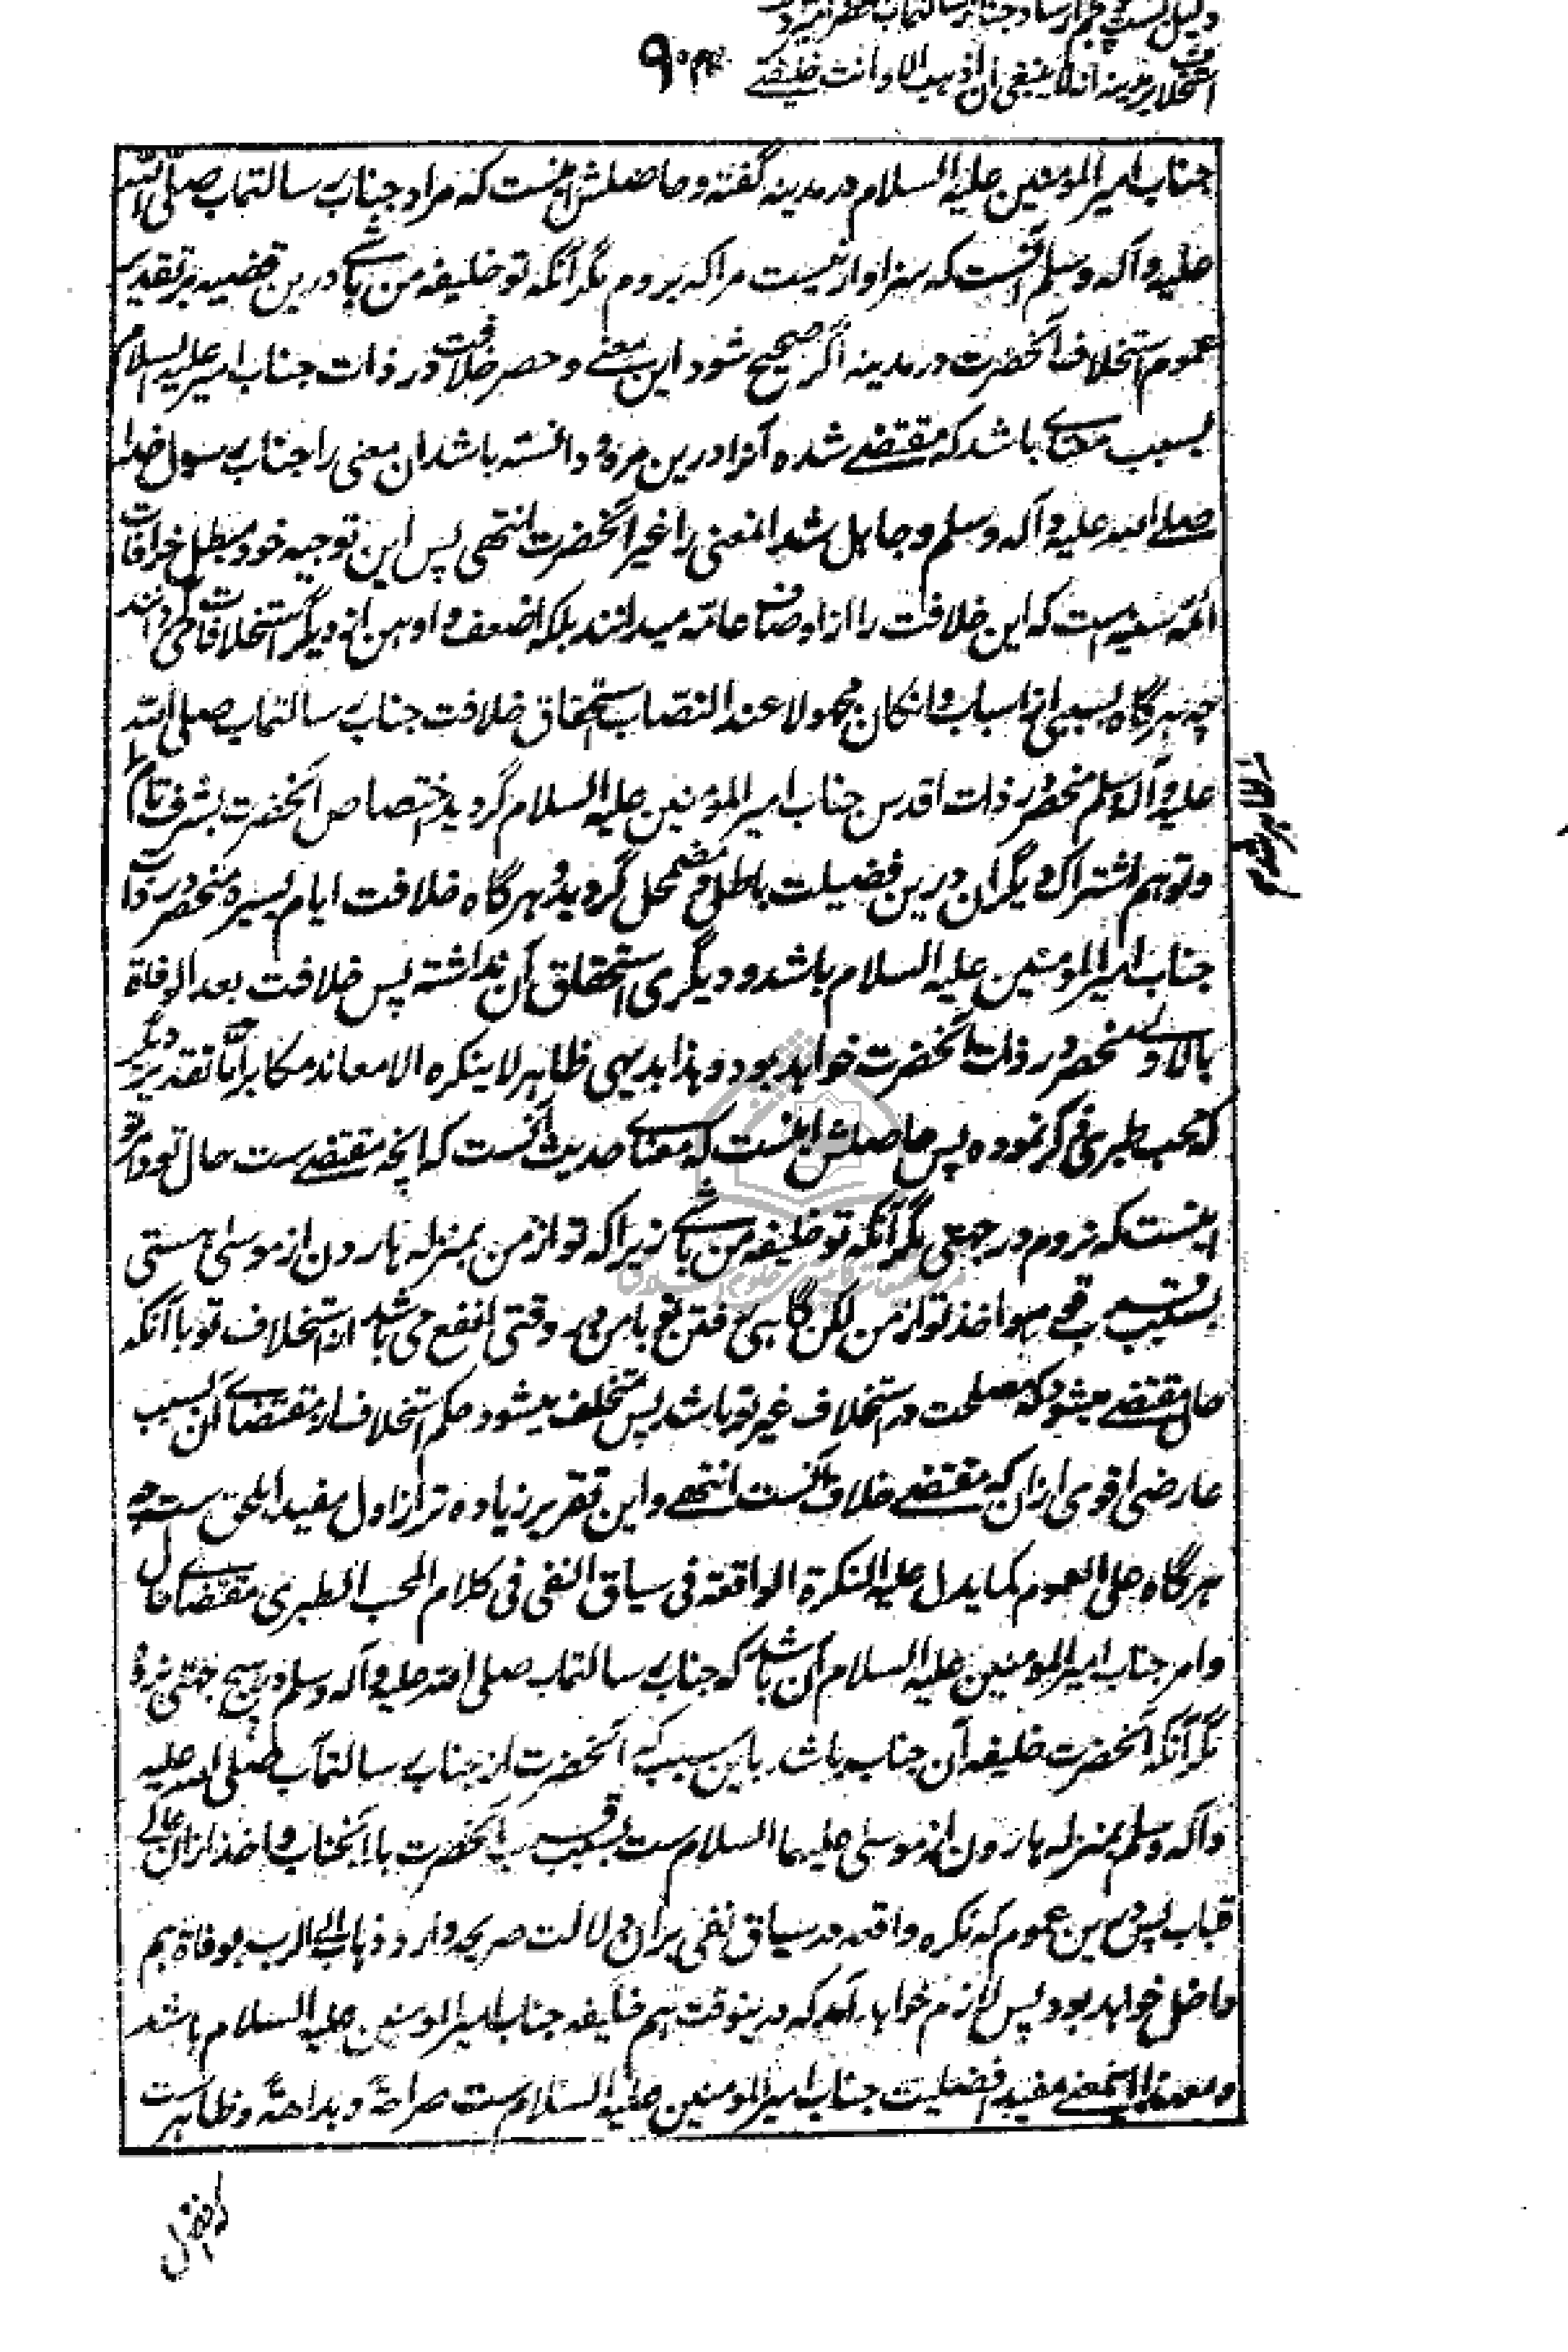 دلیل بست و پنجم ارشاد جناب رسالتمآب
استخلاف بر مدینه انه لا ینبغی ان اذهب الا و انت خلیفتے
۹۰
جناب امیر المؤمنین علیه السلام در مدینه گفته و حاصلش اینست که مراد جناب رسالتمآب صلی الله
علیه و آله وسلم آنست که سزاوار نیست مرا که بروم مگر آنگه تو خلیفه من باشے درین قضیه بر تقدیر
عموم استخلاف آنحضرت در مدینه اگر صحیح شود این معنے و حصر خلافت در ذات جناب امیر علیه السلام
بسبب معناے باشد که مقتضے شده آنرا درین مره و دانسته باشد آن معنی را جناب رسول خدا
صلے الله علیه و آله وسلم و جاهل شد المعنی را غیر آنحضرت انتهی پس این توجیه خود مبطل خرافات
ائمه سنیه است که این خلافت را از اوصاف عامّه میدانند بلکه اضعف و اوهن از دیگر استخلافات می دانند
چه هر گاه بسببی از اسباب و ان کان مجهولا عند النصاب استحقاق خلافت جناب رسالتمآب صلی الله
علیه و آله وسلم منحصر در ذات اقدس جناب امیر المؤمنین علیه السلام گردید اختصاص آنحضرت بشرف تام
و توهم اشتراک دیگران درین فضیلت باطل و مضمحل گردید و هر گاه خلافت ایام یسیره منحصر در ذات
جناب امیر المومنین علیه السلام باشد و دیگری استحقاق آن نداشته پس خلافت بعد الوفاة
بالاولے منحصر در ذات آنحضرت خواهد بود و هذا بدیهی ظاهر لا ینکره الا معاند مکابر امّا تقدیر دیگر
که محب طبری ذکر نموده پس حاصلش اینست که معناے حدیث آنست که آنچه مقتضے ست حال تو و امر تو
اینست که نروم در جهتی مگر آنگه تو خلیفه من باشے زیرا که تو از من بمنزله هارون از موسی هستی
بسبب قرب و اخذ تو از من لکن گاهی رفتن تو با من در وقتی انفع می باشد از استخلاف تو با آنکه
حال مقتضے میشود که مصلحت در استخلاف غیر تو باشد پس متخلف میشود حکم استخلاف از مقتضاے آن بسبب
عارضی اقوی از آن که مقتضے خلاف آنست انتهے و این تقریر زیاده تر از اول مفید اهل حق ست چه
هر گاه علی العموم کما یدل علیه النکرة الواقعة فی سیاق النفی فی کلام المحب الطبری مقتضاے حال
و امر جناب امیر المومنین علیه السلام آن باشد که جناب رسالتمآب صلی الله علیه و آله وسلم در هیچ جهتی نرود
مگر آنکه آنحضرت خلیفه آن جناب باشد باین سبب که آنحضرت از جناب رسالتمآب صلی الله علیه
و آله وسلم بمنزله هارون از موسی علیهما السلام ست بسبب قرب آنحضرت با آنجناب و اخذ از آن عالی
قباب پس درین عموم که نکره واقعه در سیاق نفی بر آن دلالت صریحه دارد ذهاب الی الرب بوفاة هم
داخل خواهد بود پس لازم خواهد آمد که درینوقت هم خلیفه جناب امیر المومنین علیه السلام باشد
و معهذا اینمعنے مفید افضلیت جناب امیر المومنین علیه السلام ست صراحةً و بداهةً و ظاهر ست